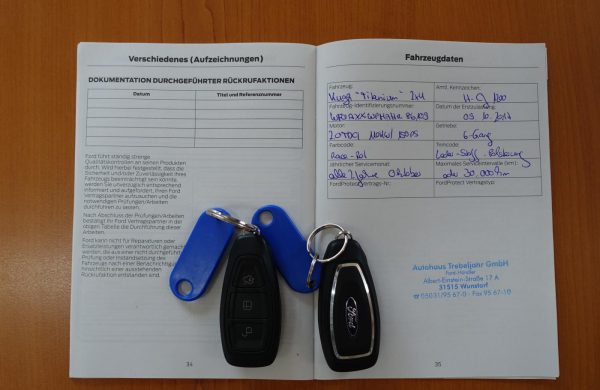 Verschiedenes (Aufzeichnungen)
DOKUMENTATION DURCHGEFÜHRTER RÜCKRUFAKTIONEN
Datum
Titel und Referenznummer
Ford führt ständig strenge
Qualitätskontrollen an seinen Produkten
durch. Wird hierbei festgestellt, dass die
Sicherheit und/oder Zuverlässigkeit Ihres
Fahrzeugs beeinträchtigt sein könnte,
werden Sie unverzüglich entsprechend
informiert und aufgefordert, Ihren Ford
Vertragspartner aufzusuchen und die
notwendigen Prüfungen/Arbeiten
durchführen zu lassen.
Nach Abschluss der Prüfungen/Arbeiten
bestätigt Ihr Ford Vertragspartner in der
obigen Tabelle die Durchführung dieser
Arbeiten.
Ford kann nicht für Reparaturen oder
Ersatzleistungen verantwortlich gemacht
werden, die aus einer nicht durchgeführten
Prüfung oder Instandsetzung des
Fahrzeugs nach einer Benachrichtigung
hinsichtlich einer ausstehenden
Rückrufaktion entstanden sind.
34
Fahrzeugdaten
Fahrzeug:
Kuga "Titanium" 2x4
Amtl. Kennzeichen:
Fahrzeug-Identifizierungsnummer:
Datum der Erstzulassung:
09.10.2017
Motor:
150PS
Getriebe:
6-Gang
Farbcode:
Race-Rot
Trimcode:
Leder-Stoff
jährlicher Servicemonat:
alle 2 Jahre Oktober
Maximales Serviceintervalle (km):
oder 30.000 km
FordProtect Vertrags-Nr.:
FordProtect Vertragstyp:
Autohaus Trebeljahr GmbH
Ford-Händler
Albert-Einstein-Straße 17 A
31515 Wunstorf
☎ 05031/95 67-0 - Fax 95 67-10
35
Ford